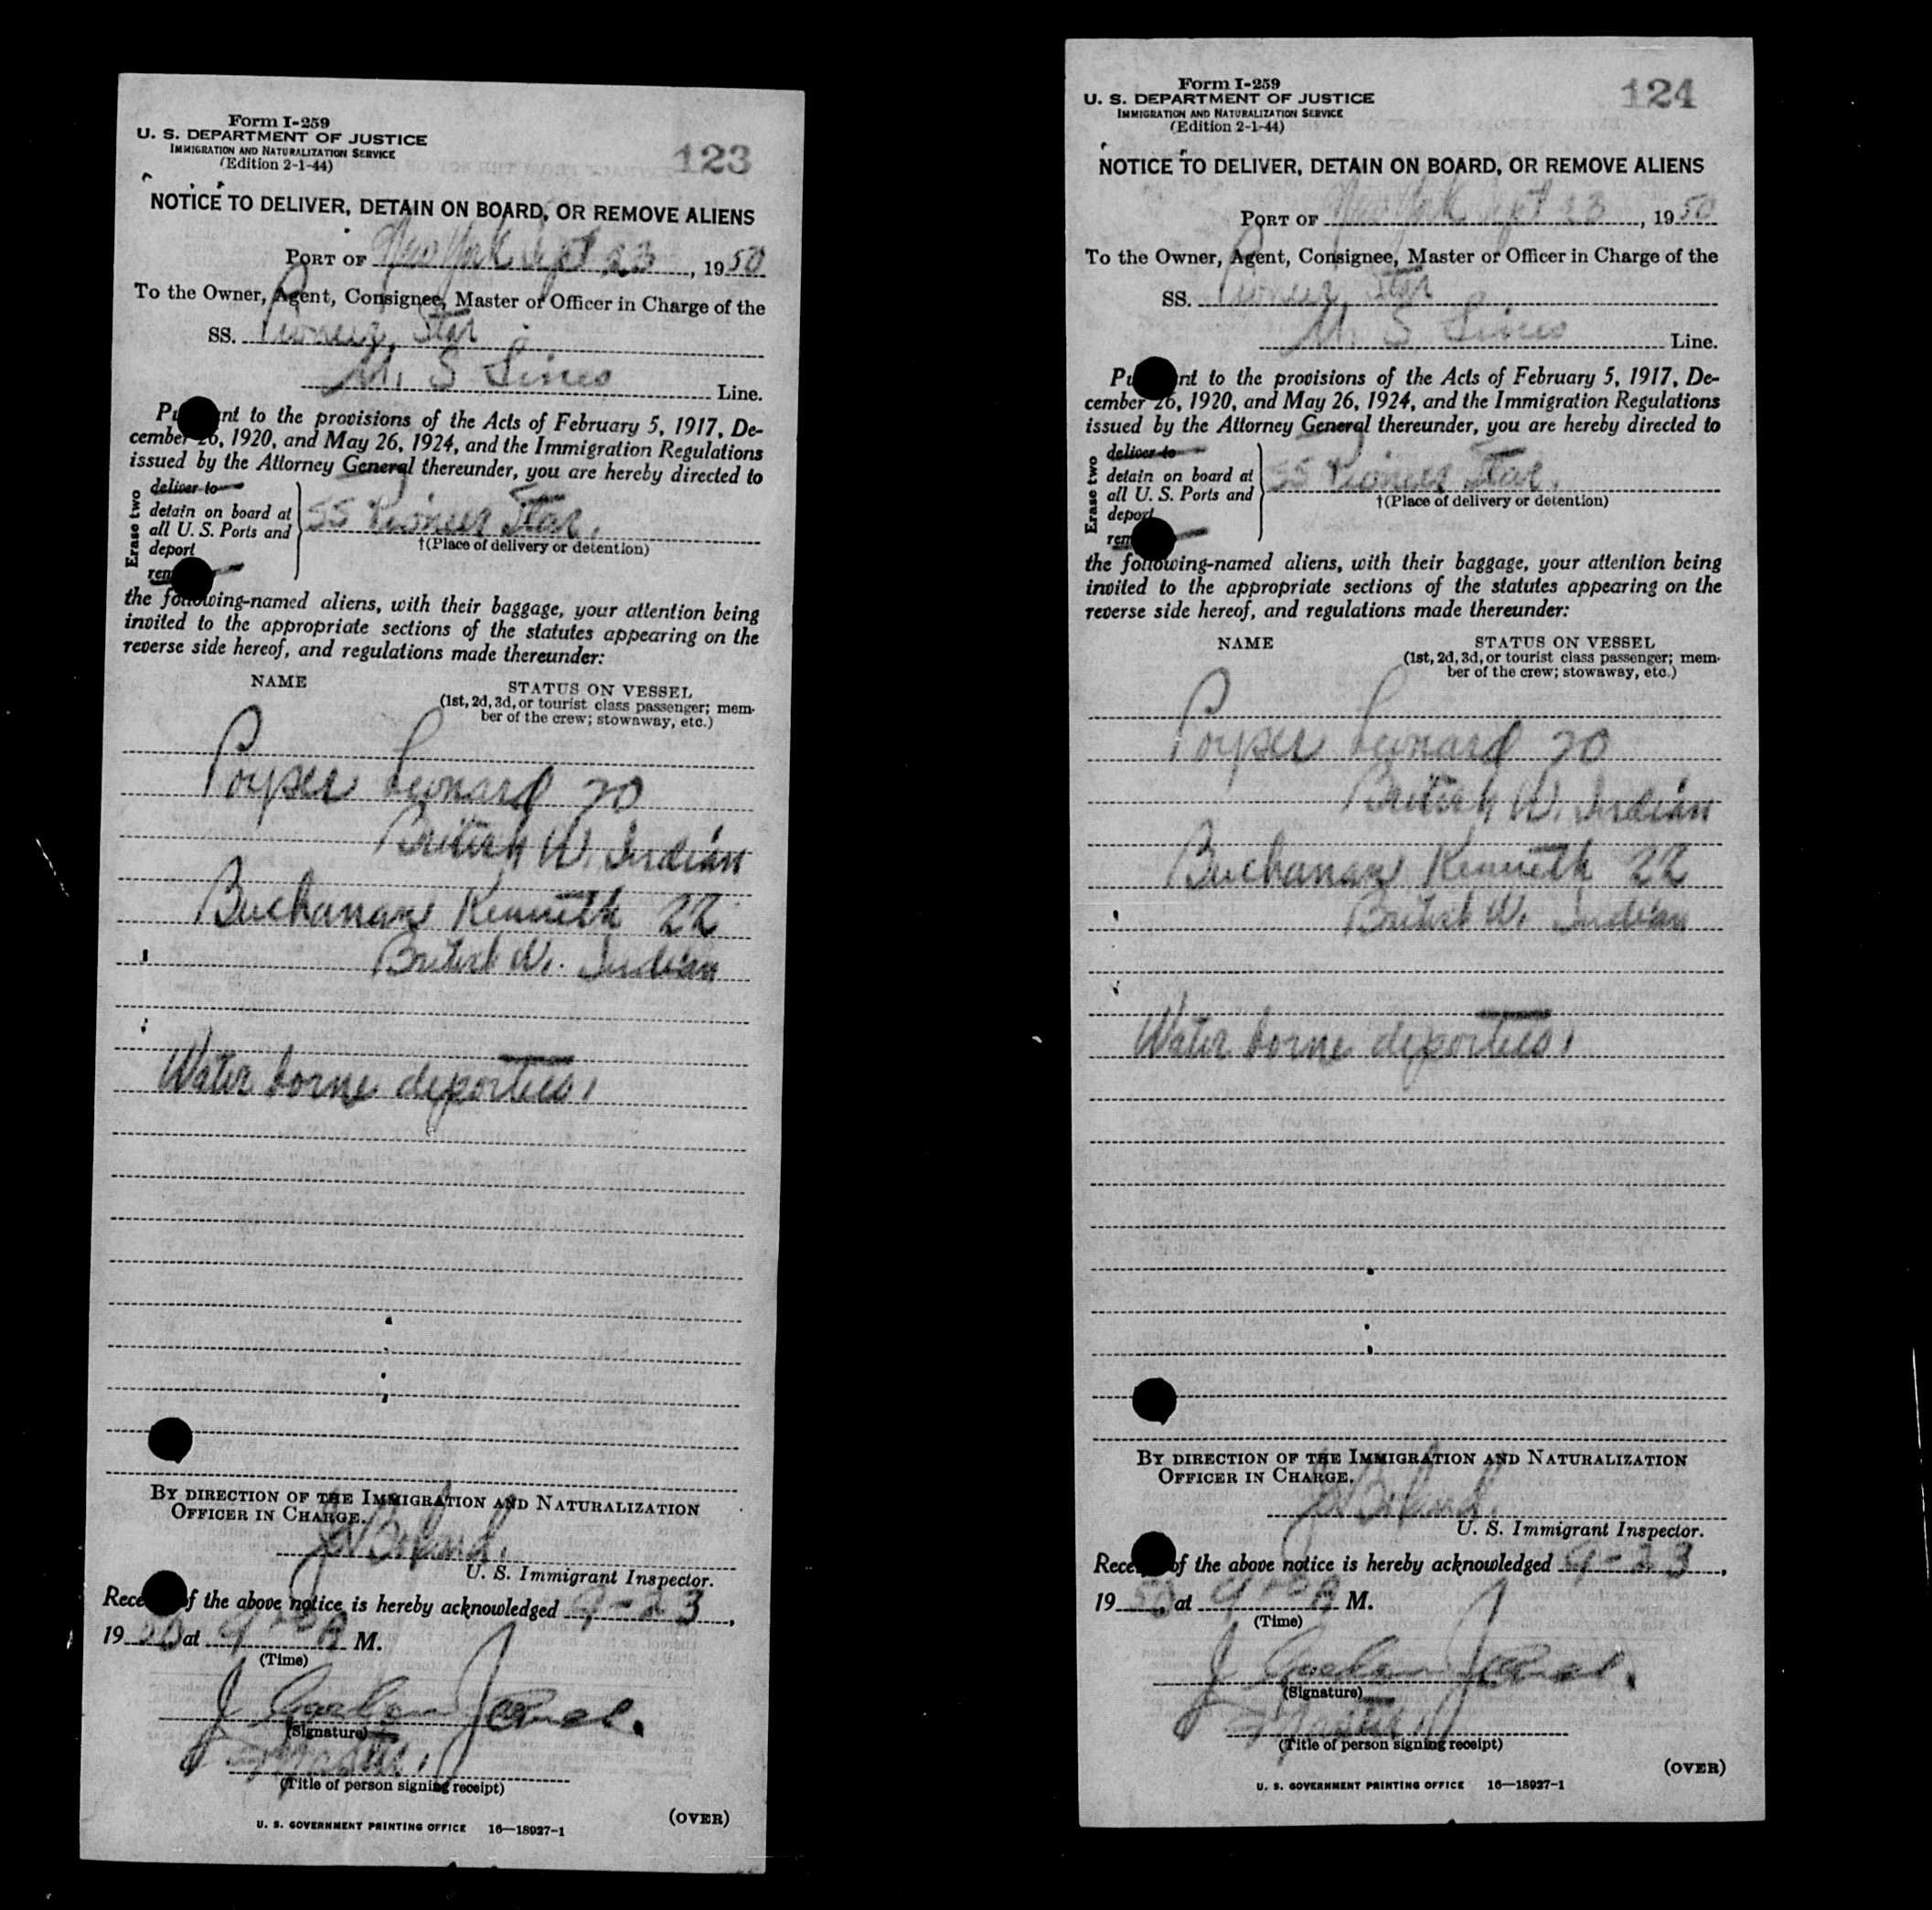 Form I-259
U. S. DEPARTMENT OF JUSTICE
IMMIGRATION AND NATURALIZATION SERVICE
(Edition 2-1-44)
123
NOTICE TO DELIVER, DETAIN ON BOARD, OR REMOVE ALIENS
PORT OF New York Sept 23, 1950
To the Owner, Agent, Consignee, Master or Officer in Charge of the
SS. Pioneer Star
U. S Lines Line.
Pu nt to the provisions of the Acts of February 5, 1917, De-
cember 26, 1920, and May 26, 1924, and the Immigration Regulations
issued by the Attorney General thereunder, you are hereby directed to
Erase two
deliver to
detain on board at
all U. S. Ports and
deport
rem
SS Pioneer Star.
†(Place of delivery or detention)
the following-named aliens, with their baggage, your attention being
invited to the appropriate sections of the statutes appearing on the
reverse side hereof, and regulations made thereunder:
NAME
STATUS ON VESSEL
(1st, 2d, 3d, or tourist class passenger; mem-
ber of the crew; stowaway, etc.)
Poyser Leonard 20
British W. Indian
Buchanan Kenneth 22
British W. Indian
Water borne deportees.
BY DIRECTION OF THE IMMIGRATION AND NATURALIZATION
OFFICER IN CHARGE.
U. S. Immigrant Inspector.
Rece f the above notice is hereby acknowledged 9-23,
1950, at 9 A M.
(Time)
(Signature)
Master
(Title of person signing receipt)
U. S. GOVERNMENT PRINTING OFFICE 16—18927-1
(OVER)
Form I-259
U. S. DEPARTMENT OF JUSTICE
IMMIGRATION AND NATURALIZATION SERVICE
(Edition 2-1-44)
124
NOTICE TO DELIVER, DETAIN ON BOARD, OR REMOVE ALIENS
PORT OF New York Sept 23, 1950
To the Owner, Agent, Consignee, Master or Officer in Charge of the
SS. Pioneer Star
U. S Lines Line.
Pu nt to the provisions of the Acts of February 5, 1917, De-
cember 26, 1920, and May 26, 1924, and the Immigration Regulations
issued by the Attorney General thereunder, you are hereby directed to
Erase two
deliver to
detain on board at
all U. S. Ports and
deport
rem
SS Pioneer Star.
†(Place of delivery or detention)
the following-named aliens, with their baggage, your attention being
invited to the appropriate sections of the statutes appearing on the
reverse side hereof, and regulations made thereunder:
NAME
STATUS ON VESSEL
(1st, 2d, 3d, or tourist class passenger; mem-
ber of the crew; stowaway, etc.)
Poyser Leonard 20
British W. Indian
Buchanan Kenneth 22
British W. Indian
Water borne deportees.
BY DIRECTION OF THE IMMIGRATION AND NATURALIZATION
OFFICER IN CHARGE.
U. S. Immigrant Inspector.
Rece of the above notice is hereby acknowledged 9-23,
1950, at 9 A M.
(Time)
(Signature)
Master
(Title of person signing receipt)
(OVER)
U. S. GOVERNMENT PRINTING OFFICE 16—18927-1